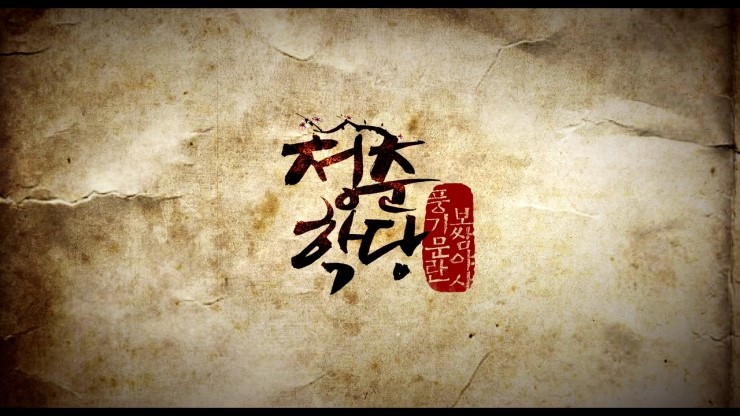 청춘
학당
풍기문란
보쌈야사